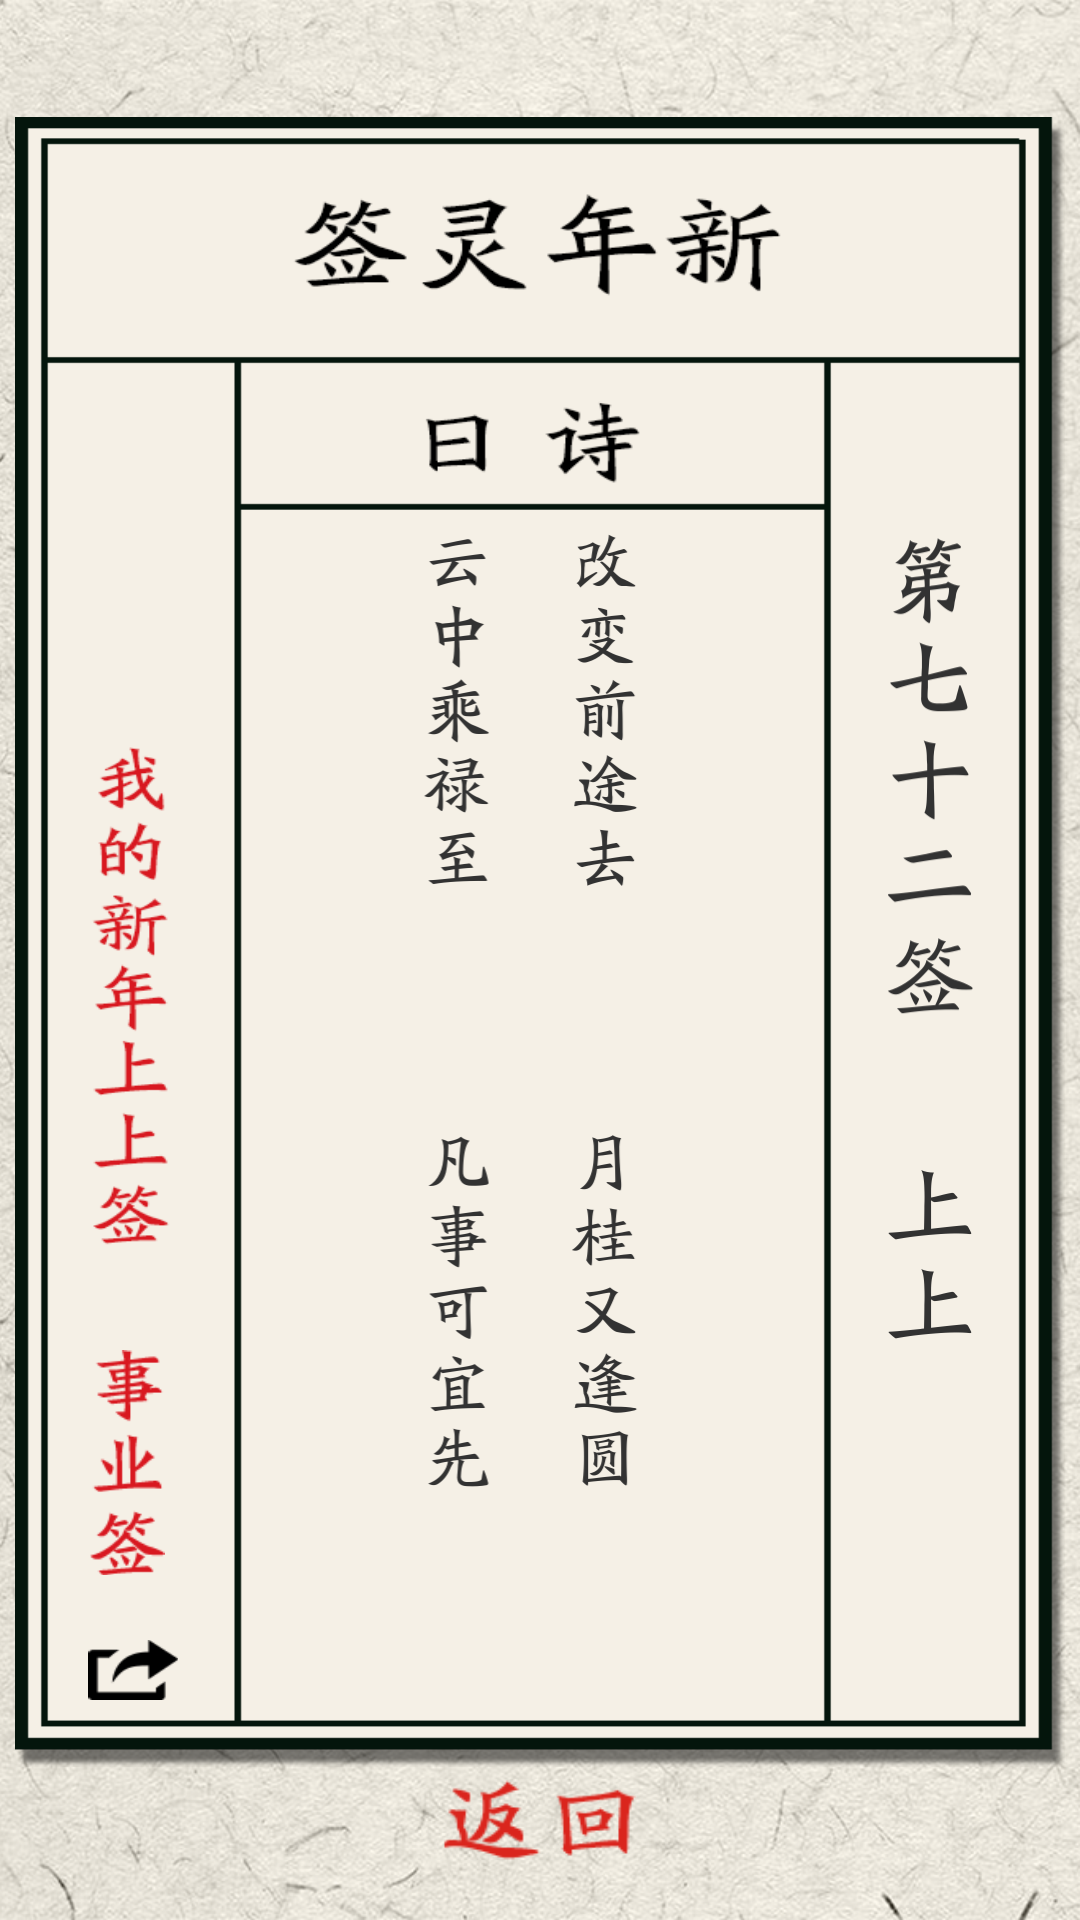 新年灵签
第七十二签 上上
诗曰
改变前途去 月桂又逢圆
云中乘禄至 凡事可宜先
我的新年上上签 事业签
返回